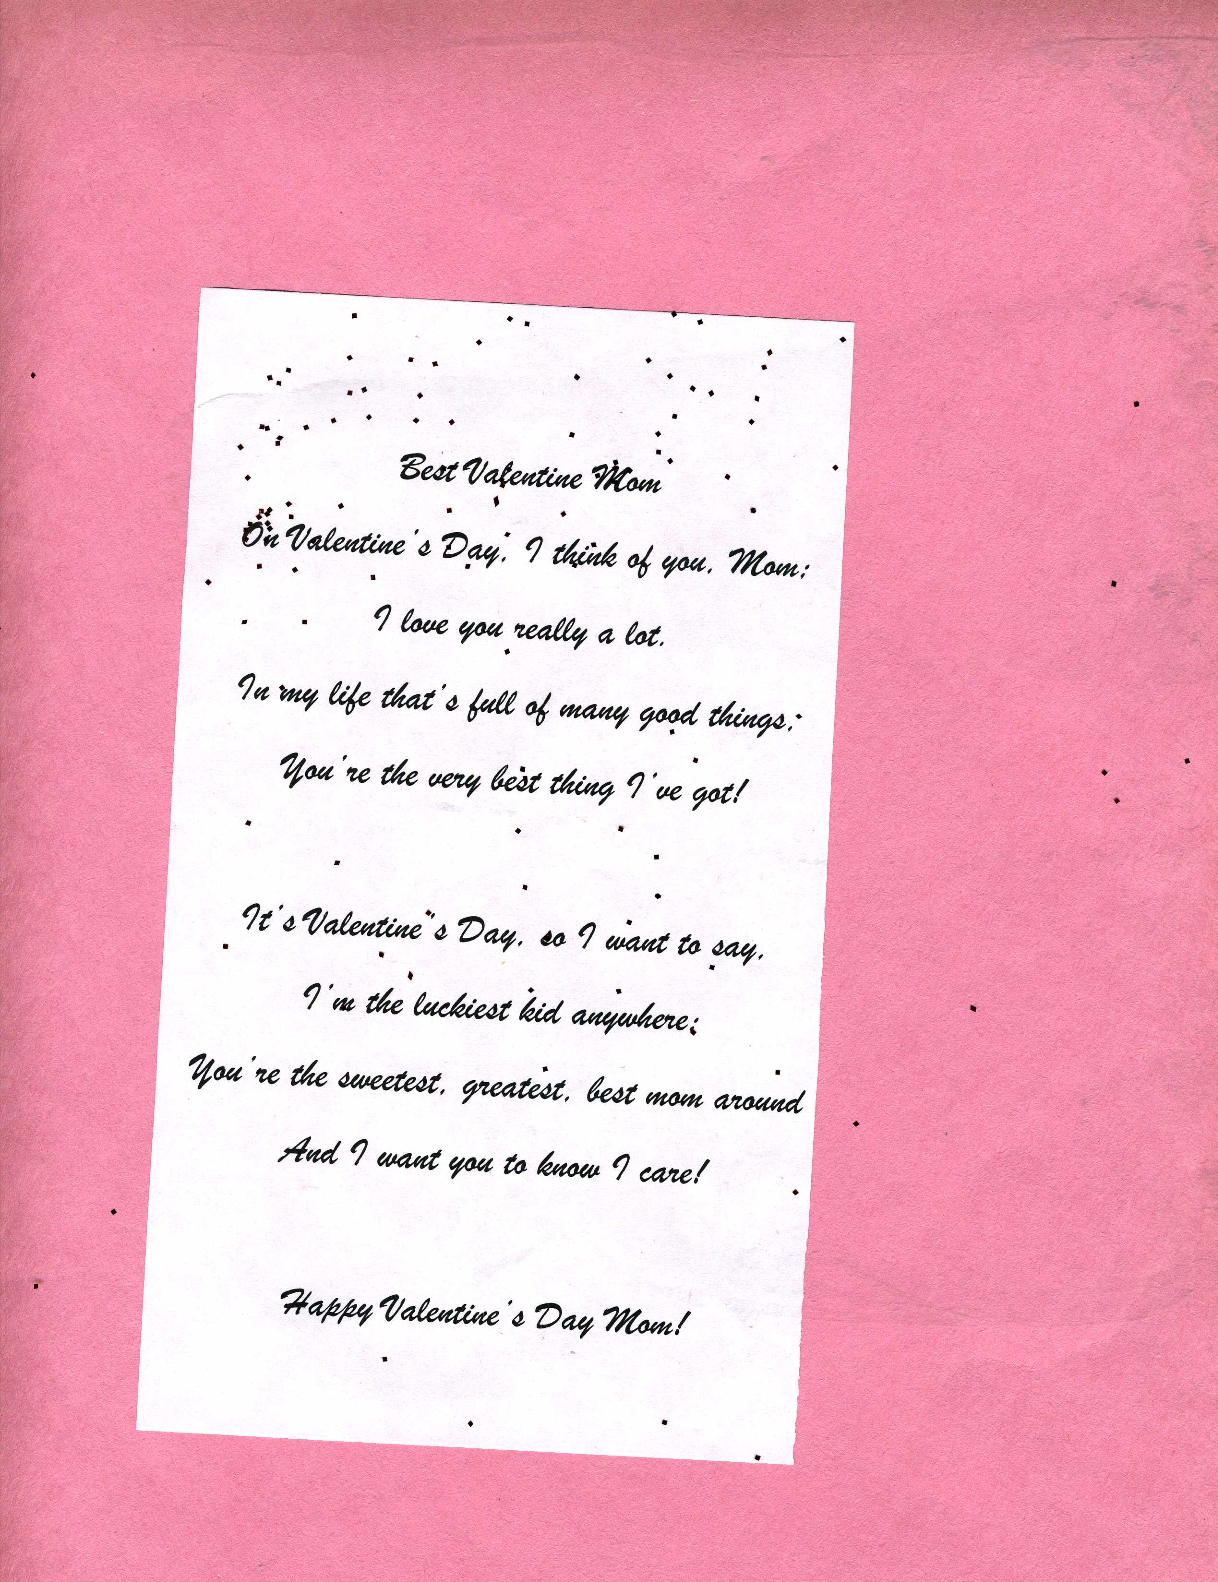 Best Valentine Mom
On Valentine's Day, I think of you, Mom;
I love you really a lot.
In my life that's full of many good things;
You're the very best thing I've got!
It's Valentine's Day, so I want to say,
I'm the luckiest kid anywhere;
You're the sweetest, greatest, best mom around
And I want you to know I care!
Happy Valentine's Day Mom!